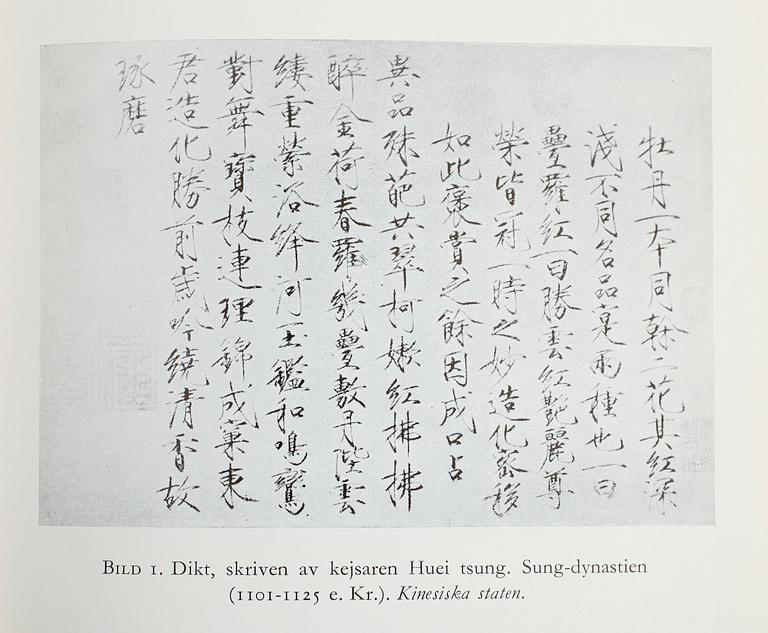 牡丹一本同幹二花其紅深
淺不同名品寔兩種也一曰
疊羅紅一曰勝雲紅艷麗尊
榮皆冠一時之妙造化密移
如此褒賞之餘因成口占
異品殊葩共翠柯嫩紅拂拂
醉金荷春羅幾疊敷丹陛雲
縷重縈浴絳河玉鑑和鳴鸞
對舞寶枝連理錦成窠東
君造化勝前歲吟繞清香故
琢磨
BILD 1. Dikt, skriven av kejsaren Huei tsung. Sung-dynastien
(1101-1125 e. Kr.). Kinesiska staten.